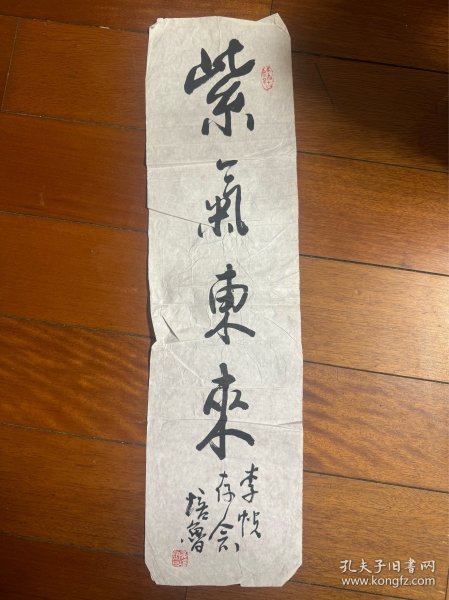 紫氣東來
李悅
存念
培魯
孔夫子旧书网
www.kongfz.com